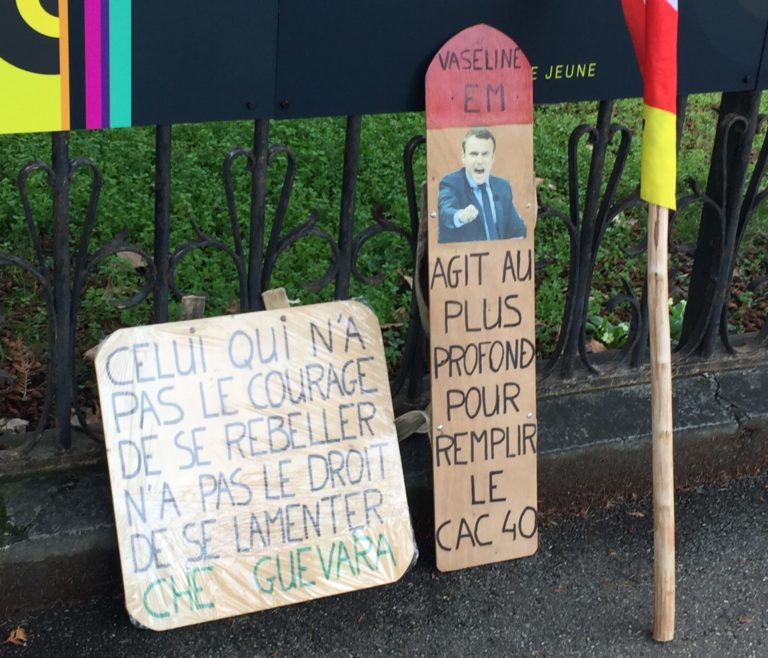 E JEUNE
VASELINE
EM
AGIT AU
PLUS
PROFOND
POUR
REMPLIR
LE
CAC 40
CELUI QUI N'A
PAS LE COURAGE
DE SE REBELLER
N'A PAS LE DROIT
DE SE LAMENTER
CHE GUEVARA